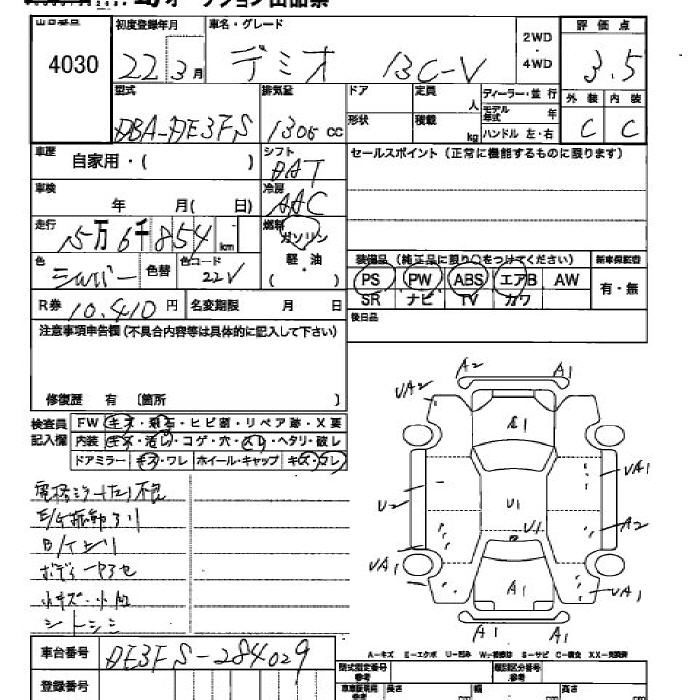 オークション出品票
出品番号 初度登録年月 車名・グレード 2WD ・ 4WD 評価点
4030 22 3月 デミオ 13C-V 3.5
型式 排気量 ドア 定員 人 ディーラー・並行 外装 内装
DBA-DE3FS 1300 cc 形状 積載 kg モデル年式 年 ハンドル 左・右 C C
車歴 自家用・( ) シフト DAT セールスポイント(正常に機能するものに限ります)
車検 年 月( 日) 冷房 AAC
走行 15万6千854 km 燃料 ガソリン
軽・油
( )
色 シルバー 色替 色コード 22V
装備品(純正品に限り○をつけてください) 新車保証書
PS PW ABS エアB AW 有・無
SR ナビ TV カワ
R券 10,410 円 名変期限 月 日 後日品
注意事項申告欄(不具合内容等は具体的に記入して下さい)
修復歴 有 〔箇所 〕
検査員記入欄 FW キズ・飛石・ヒビ割・リペア跡・X要
内装 キズ・汚レ・コゲ・穴・スレ・ヘタリ・破レ
ドアミラー キズ・ワレ ホイール・キャップ キズ・ワレ
A2 A1
UA2
A1
UA1
U2 U1
U1 A2
UA1 UA1
A1
A1 A1
ボディーヤケ
小キズ・小凹
シートシミ
A-キズ E-エクボ U-凹み W-補修跡 S-サビ C-腐食 XX-交換済
車台番号 DE3FS-284029
登録番号
型式指定番号 参考 類別区分番号 参考
長さ 幅 高さ